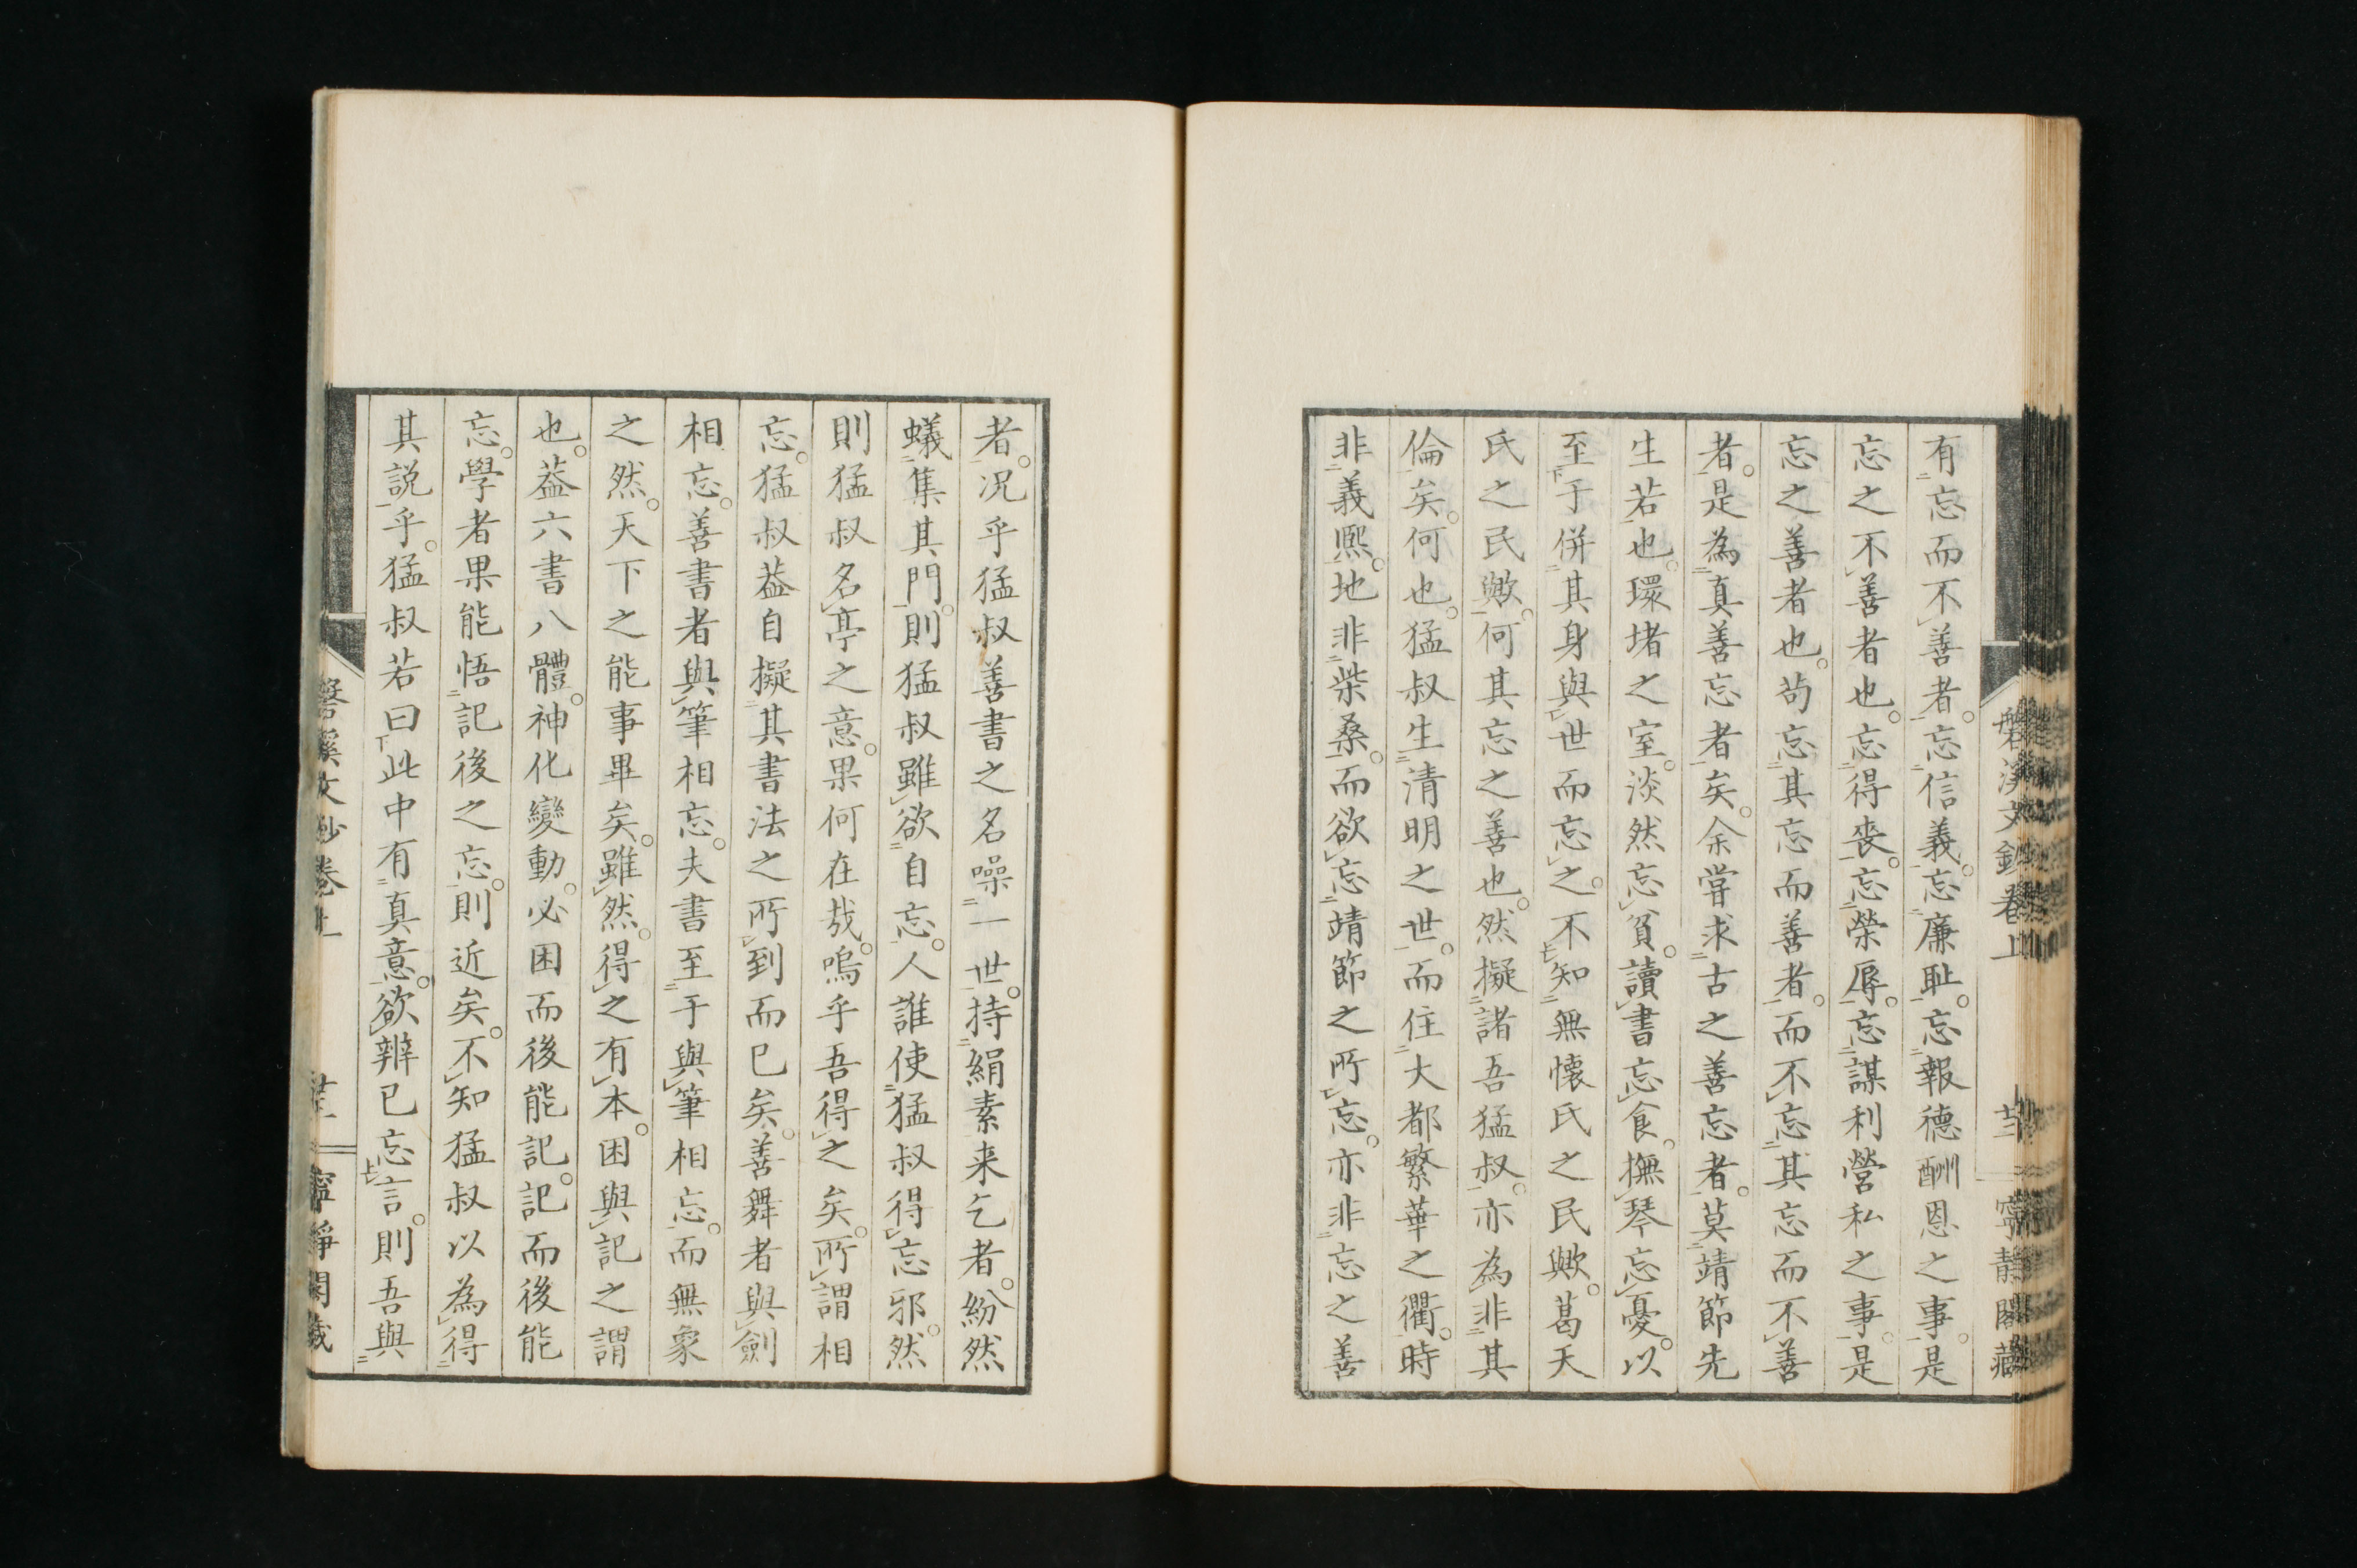 有忘而不善者。忘信義。忘廉恥。忘報德酬恩之事。是
忘之不善者也。忘得喪。忘榮辱。忘謀利營私之事。是
忘之善者也。苟忘其忘而善者。而不忘其忘而不善
者。是為真善忘者矣。余嘗求古之善忘者。莫靖節先
生若也。環堵之室。淡然忘貧。讀書忘食。撫琴忘憂。以
至于併其身與世而忘之。不知無懷氏之民歟。葛天
氏之民歟。何其忘之善也。然擬諸吾猛叔。亦為非其
倫矣。何也。猛叔生清明之世。而住大都繁華之衢。時
非義熙。地非柴桑。而欲忘靖節之所忘。亦非忘之善
磐溪文鈔卷上
寧靜閣藏
者。况乎猛叔善書之名噪一世。持絹素来乞者。紛然
蟻集其門。則猛叔雖欲自忘。人誰使猛叔得忘邪。然
則猛叔名亭之意。果何在哉。嗚乎吾得之矣。所謂相
忘。猛叔葢自擬其書法之所到而已矣。善舞者與劍
相忘。善書者與筆相忘。夫書至于與筆相忘。而無象
之然。天下之能事畢矣。雖然。得之有本。困與記之謂
也。葢六書八體。神化變動。必困而後能記。記而後能
忘。學者果能悟記後之忘。則近矣。不知猛叔以為得
其説乎。猛叔若曰此中有真意。欲辨已忘言。則吾與
磐溪文鈔卷上
寧靜閣藏